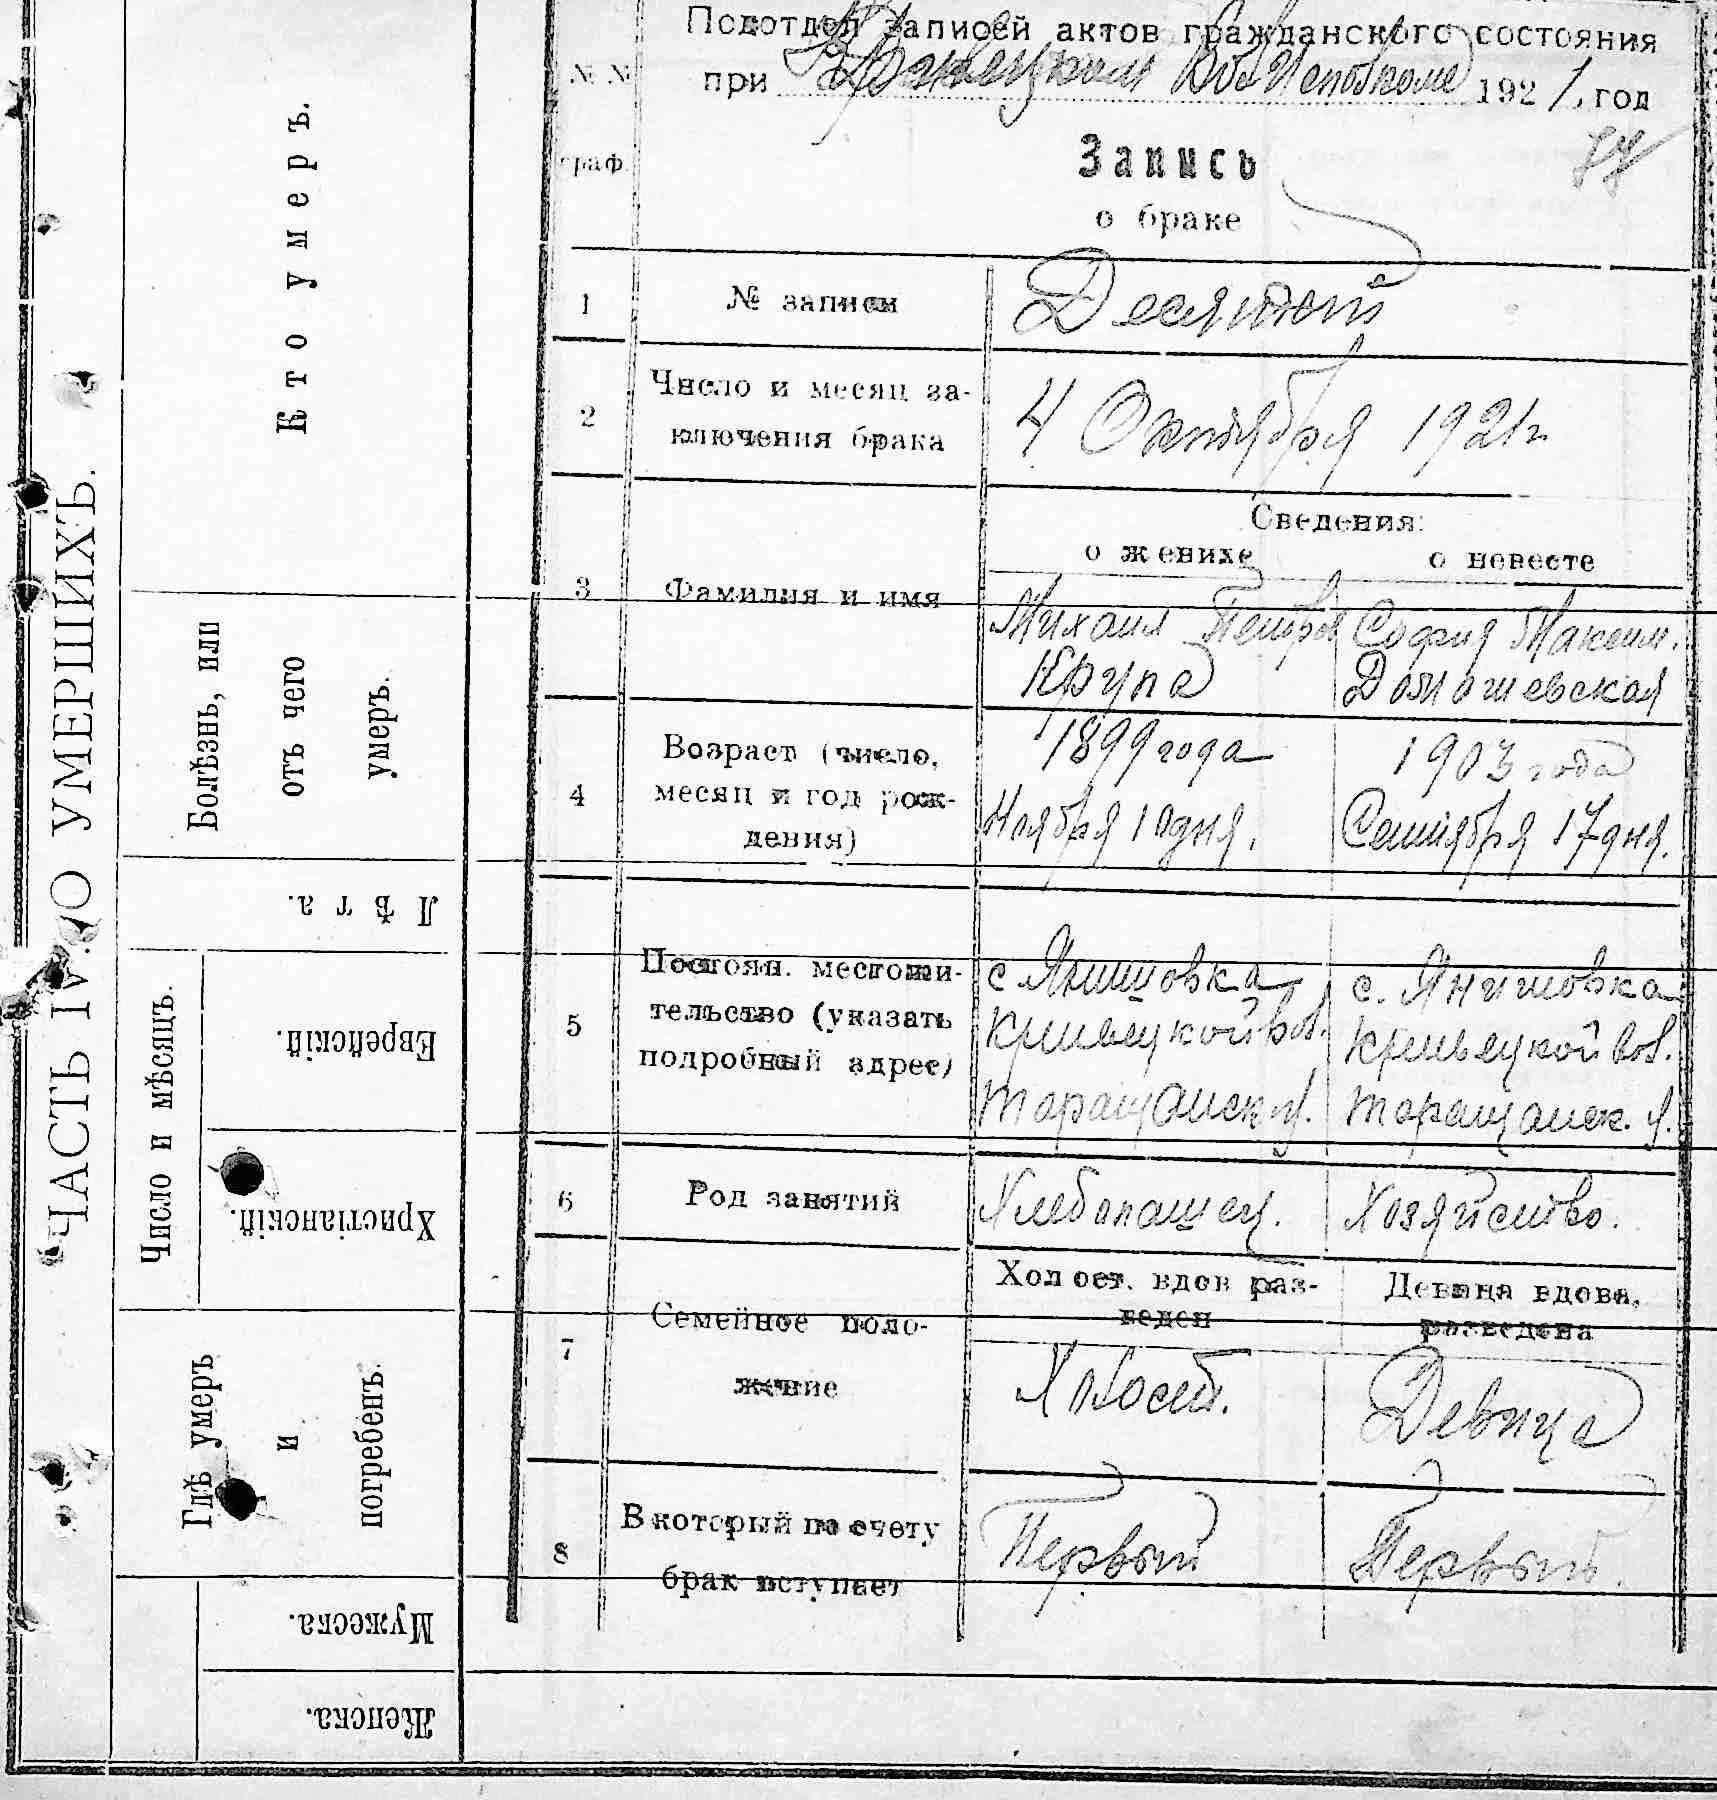 Подотдел записей актов гражданского состояния
при Кривецком Вол Исполкоме 1921, год
№ №
граф.
77
Запись
о браке
1 № записи Десятый
2 Число и месяц за-
ключения брака 4 Октября 1921 г
Сведения:
о женихе о невесте
3 Фамилия и имя Михаил Петров София Максим.
Крупа Домашевская
4 Возраст (число, 1899 года 1903 года
месяц и год рож- Ноября 10 дня. Сентября 17 дня.
дения)
5 Постоян. местожи- с Янишовка с. Янишовка
тельство (указать Кривецкой вол. Кривецкой вол.
подробный адрес) Таращанск у. Таращанск. у.
6 Род занятий Хлебопашец. Хозяйство.
Холост. вдов раз- Девица вдова,
веден разведена
7 Семейное поло-
жение Холост. Девица
8 В который по счету Первый Первый.
брак вступает
ЧАСТЬ IV. О УМЕРШИХЪ.
Кто умеръ.
Болѣзнь, или
отъ чего
умеръ.
Лѣта.
Число и мѣсяцъ.
Еврейскій.
Христіанскій.
Гдѣ умеръ
и
погребенъ
Мужеска.
Женска.